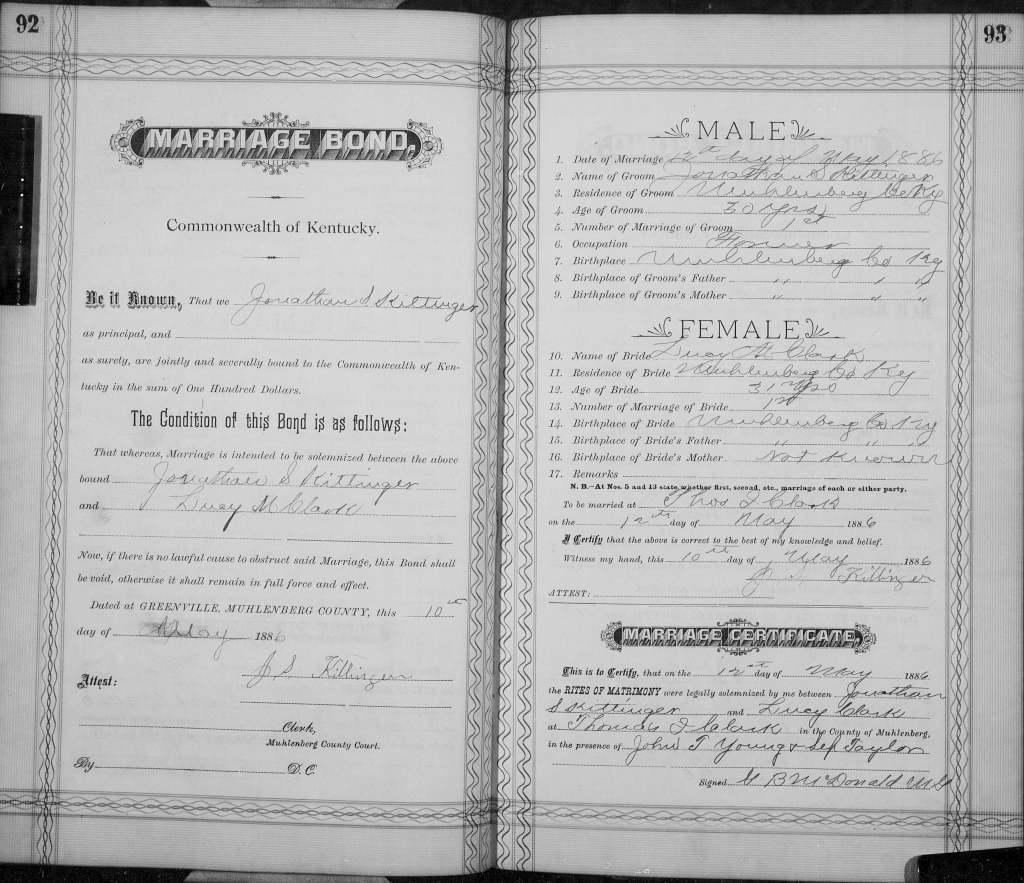 92
MARRIAGE BOND,
Commonwealth of Kentucky.
Be it Known, That we Jonathan S Kittinger
as principal, and
as surety, are jointly and severally bound to the Commonwealth of Ken-
tucky in the sum of One Hundred Dollars.
The Condition of this Bond is as follows:
That whereas, Marriage is intended to be solemnized between the above
bound Jonathan S Kittinger
and Lucy M Clark
Now, if there is no lawful cause to obstruct said Marriage, this Bond shall
be void, otherwise it shall remain in full force and effect.
Dated at GREENVILLE, MUHLENBERG COUNTY, this 10th
day of May 1886
J S Kittinger
Attest:
Clerk,
Muhlenberg County Court.
By D. C.
93
MALE
1. Date of Marriage 12th day of May 1886
2. Name of Groom Jonathan S Kittinger
3. Residence of Groom Muhlenberg Co Ky
4. Age of Groom 30 yrs
5. Number of Marriage of Groom 1st
6. Occupation Farmer
7. Birthplace Muhlenberg Co Ky
8. Birthplace of Groom's Father " " "
9. Birthplace of Groom's Mother " " "
FEMALE
10. Name of Bride Lucy M Clark
11. Residence of Bride Muhlenberg Co Ky
12. Age of Bride 31 yrs
13. Number of Marriage of Bride 1st
14. Birthplace of Bride Muhlenberg Co Ky
15. Birthplace of Bride's Father " " "
16. Birthplace of Bride's Mother Not Known
17. Remarks
N. B.—At Nos. 5 and 13 state whether first, second, etc., marriage of each or either party.
To be married at Thos I Clark
on the 12th day of May 1886
I Certify that the above is correct to the best of my knowledge and belief.
Witness my hand, this 10th day of May 1886
J S Kittinger
ATTEST:
MARRIAGE CERTIFICATE,
This is to Certify, that on the 12th day of May 1886
the RITES OF MATRIMONY were legally solemnized by me between Jonathan
S Kittinger and Lucy Clark
at Thomas I Clark in the County of Muhlenberg,
in the presence of John T Young & Taylor
Signed B McDonald